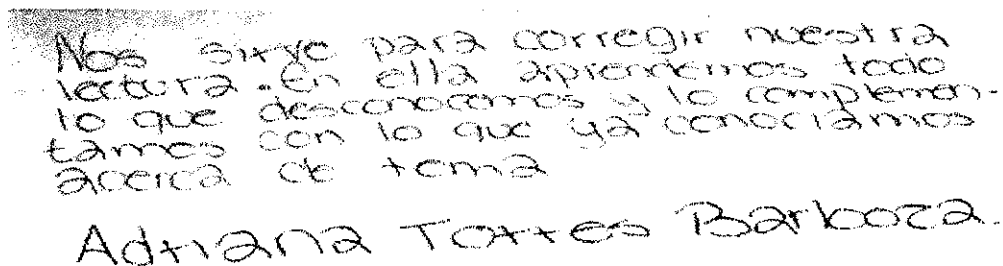 Nos sirve para corregir nuestra
lectura. En ella aprendemos todo
lo que desconocemos y lo complemen-
tamos con lo que ya conocíamos
acerca de tema
Adriana Torres Barboza.